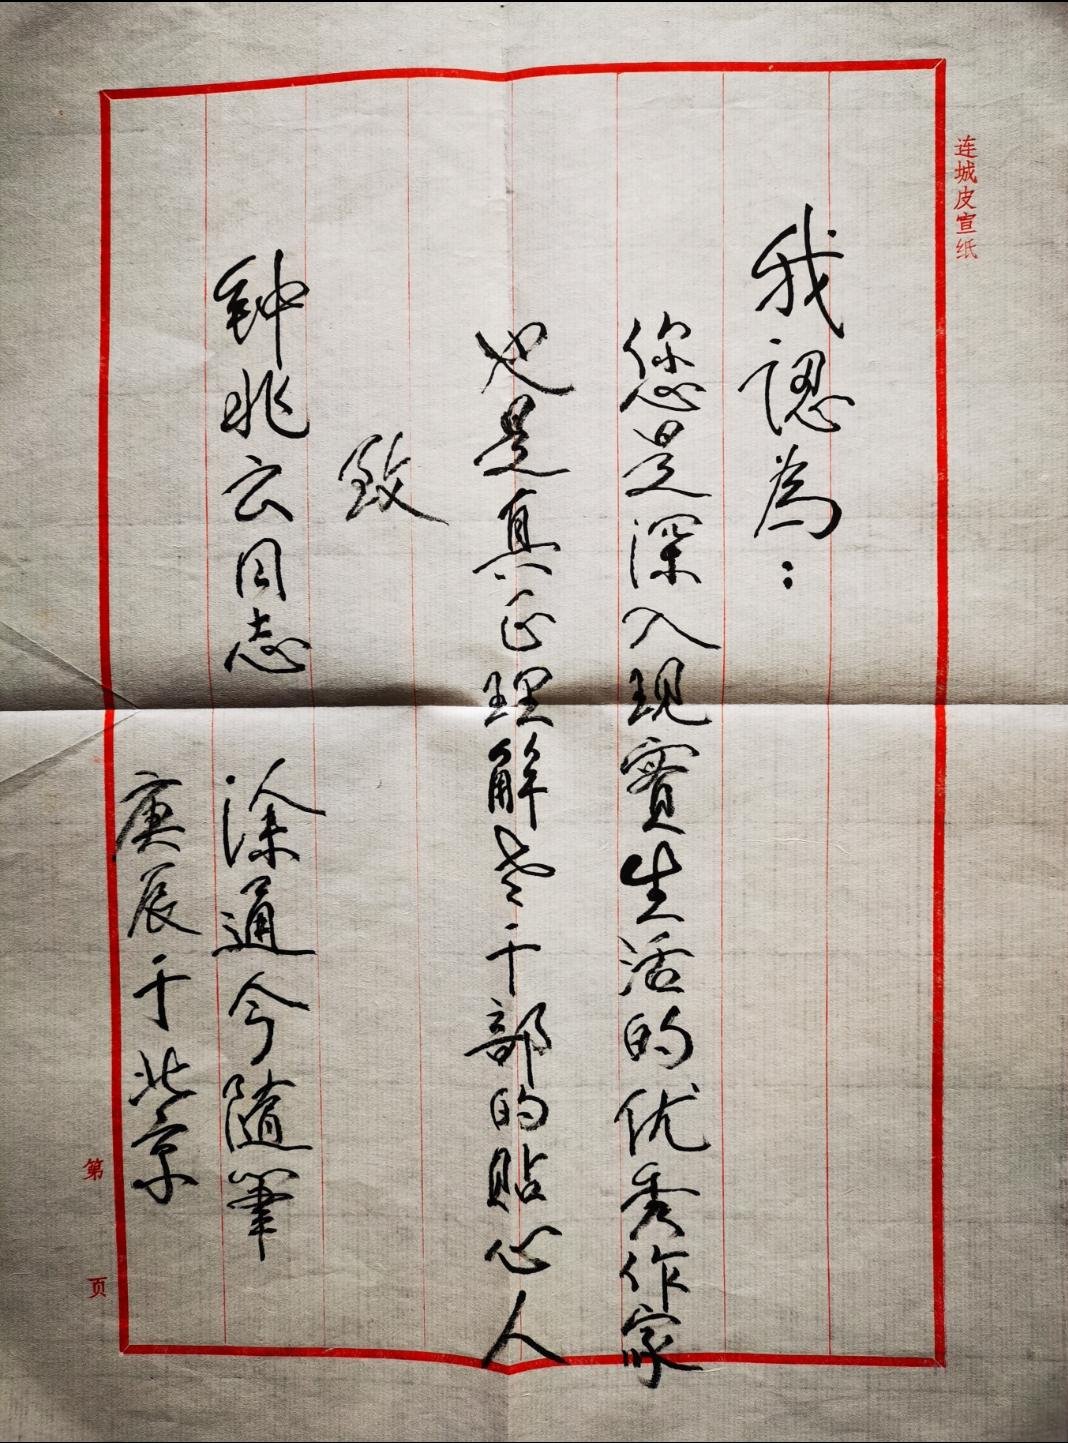 连城皮宣纸
我認為：
您是深入现實生活的优秀作家
也是真正理解老干部的贴心人
致
钟兆云同志
涂通今隨筆
庚辰于北京
第 页